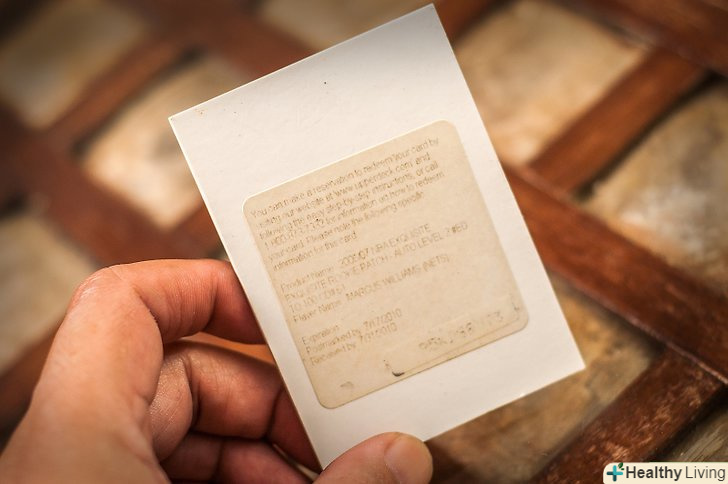 You can make a reservation to redeem your card by
visiting our website at www.upperdeck.com and
following the easy step-by-step instructions, or call
for information on how to redeem
your card. Please note the following specific
information for this card.
Product Name: NBA EXQUISITE
EXQUISITE ROOKIE PATCH - AUTO LEVEL 2 #ED
Player Name: MARCUS WILLIAMS (NETS)
Expiration:
Postmarked by 7/17/2010
Received by 7/31/2010
Healthy Living